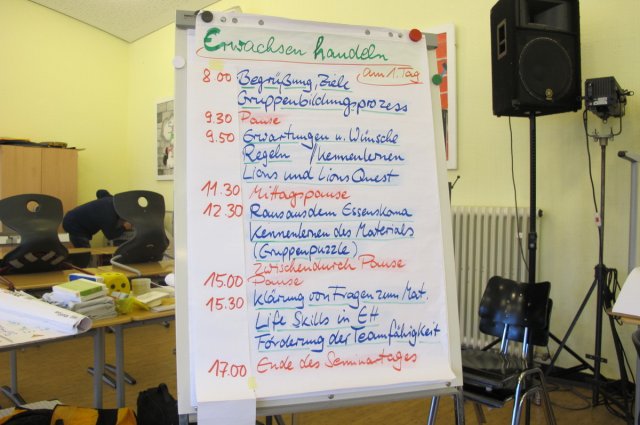 Erwachsen handeln
am 1. Tag
8 00 Begrüßung, Ziele
Gruppenbildungsprozess
9.30 Pause
9.50 Erwartungen u. Wünsche
Regeln / Kennenlernen
Lions und Lions Quest
11.30 Mittagspause
12.30 Raus aus dem Essenskoma
Kennenlernen des Materials
(Gruppenpuzzle)
Zwischendurch Pause
15.00 Pause
15.30 Klärung von Fragen zum Mat.
Life Skills in EH
Förderung der Teamfähigkeit
17.00 Ende des Seminartages